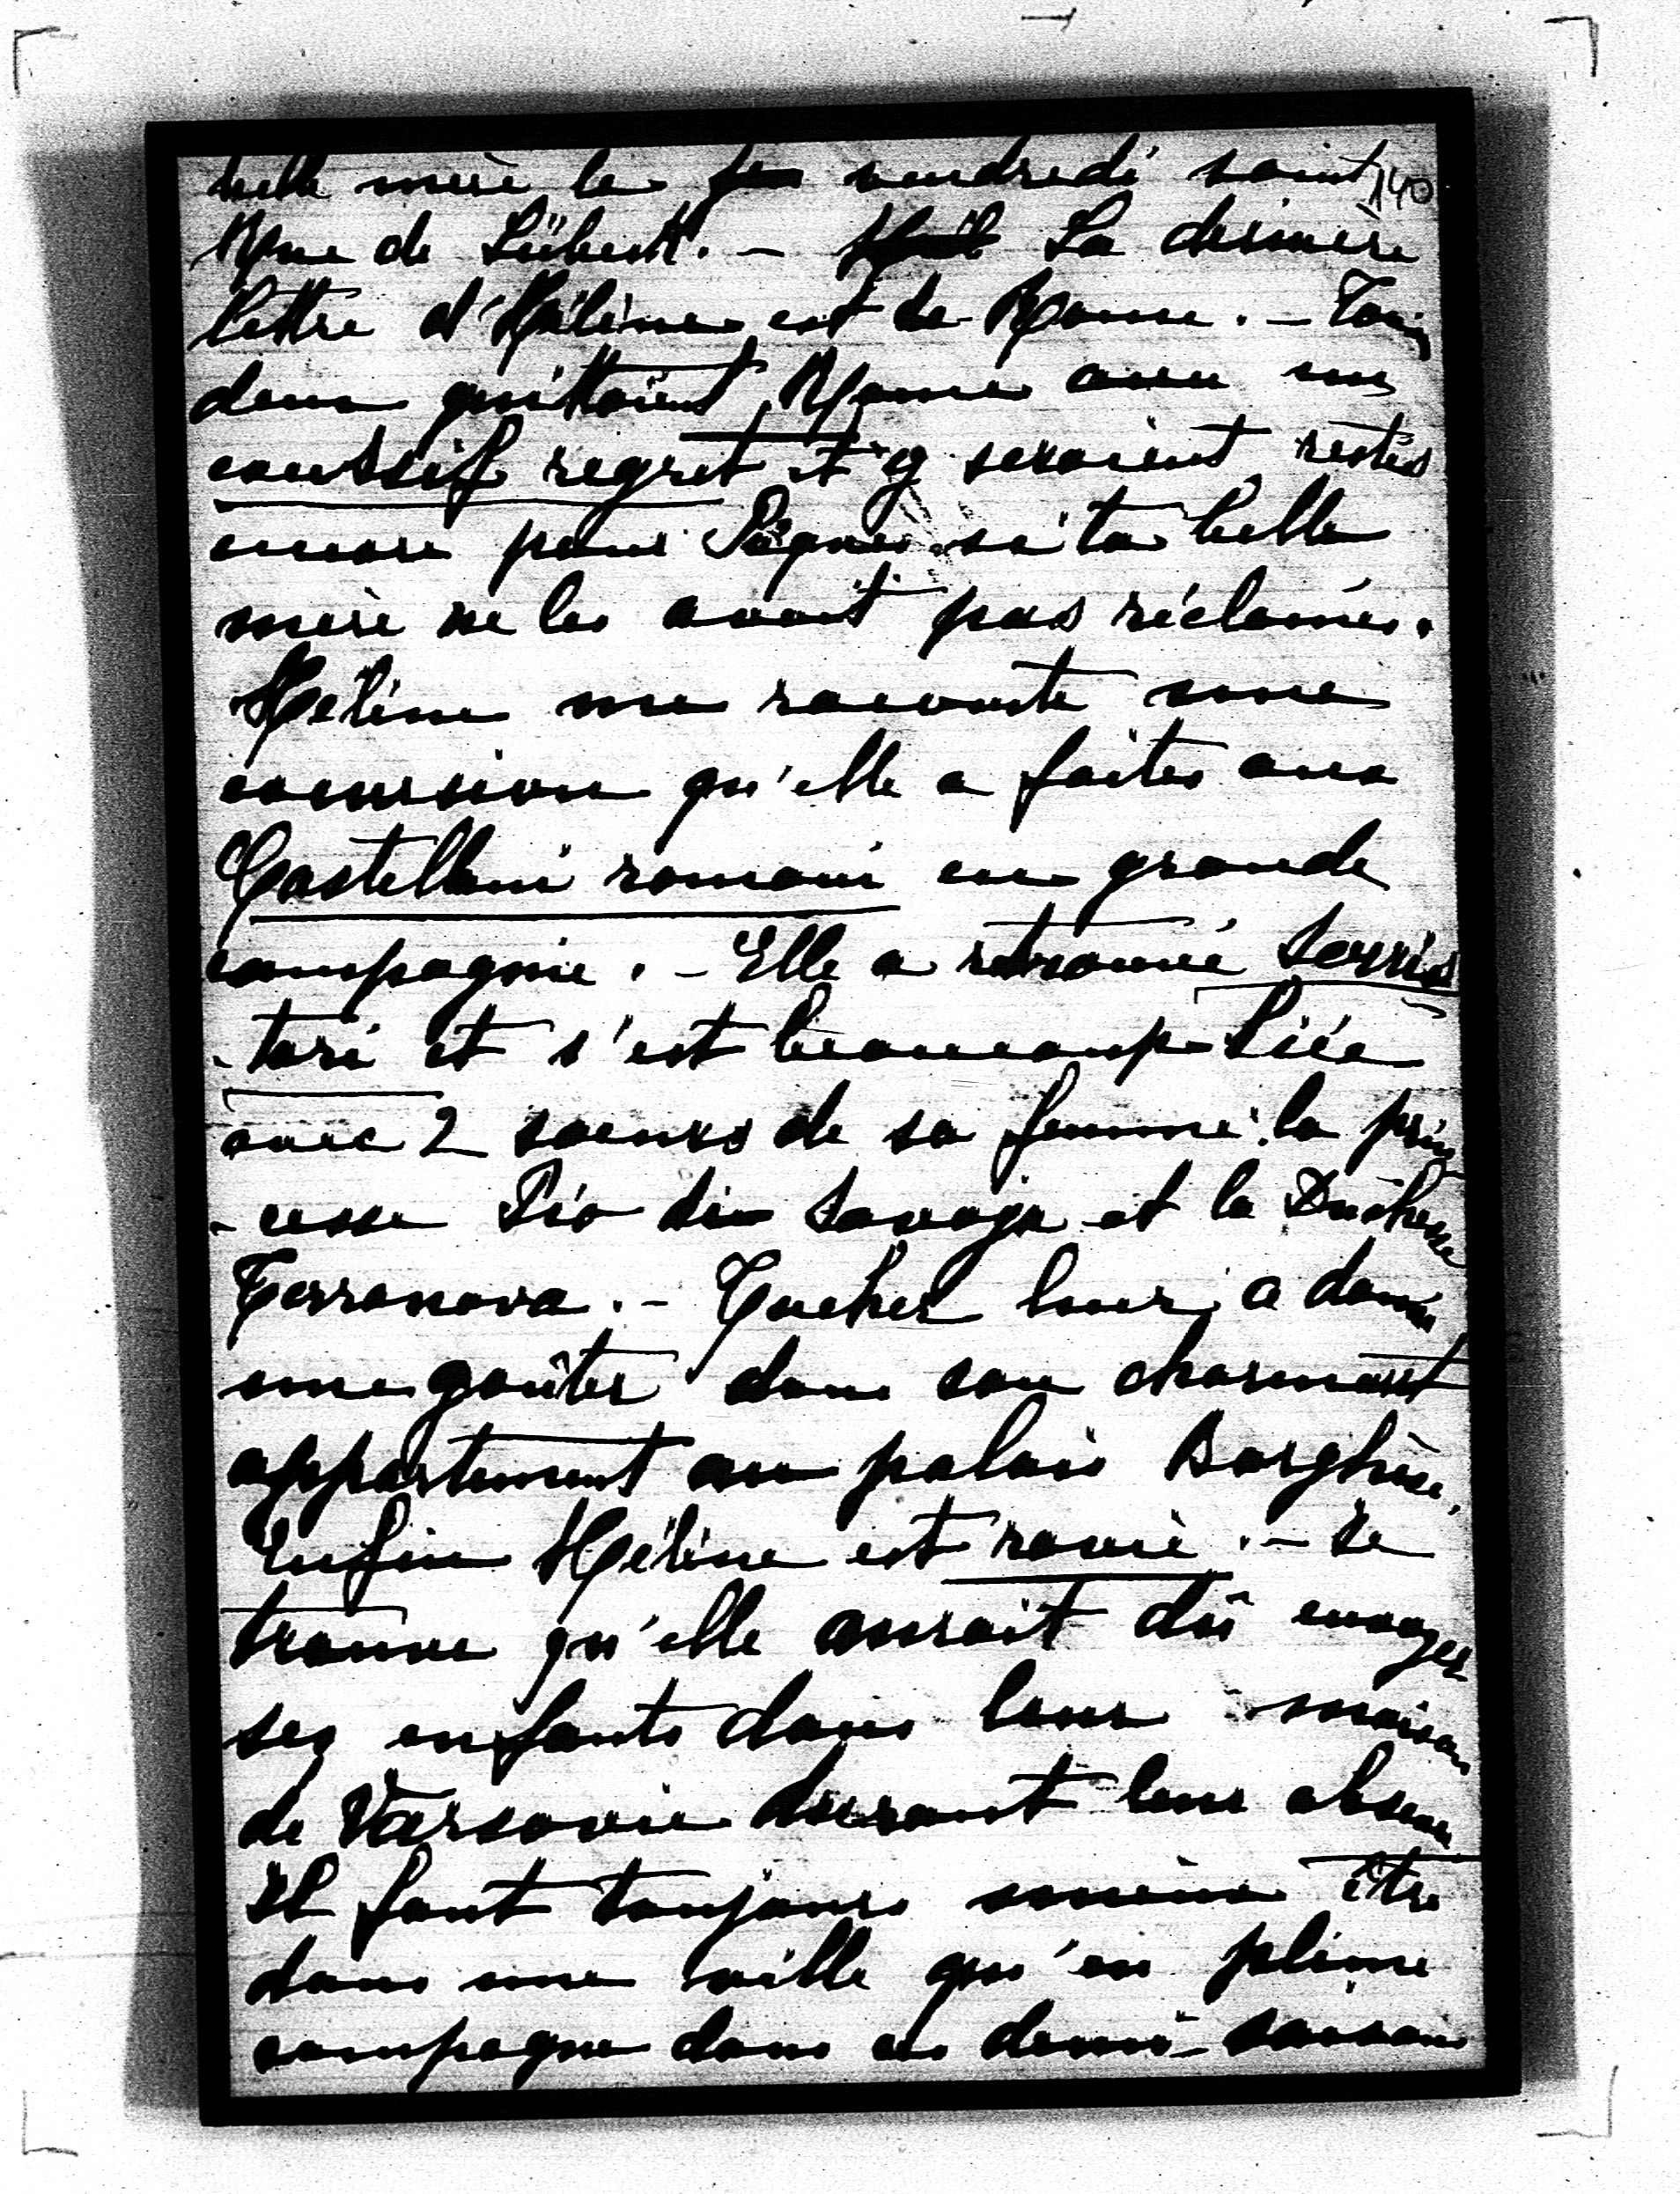 belle mère le vendredi saint 140
Mme de Lübeck. – La dernière
lettre d'Hélène est de Rome. – Tous
deux quittaient Rome avec un
excessif regret et y seraient restés
encore pour Pâques si ta belle
mère ne les avait pas réclamés.
Hélène me raconte une
excursion qu'elle a faites aux
Castellani romani en grande
compagnie. – Elle a retrouvé Serris
-tori et s'est beaucoup liée
avec 2 soeurs de sa femme : la prin
-cesse Pio di Savoja et la Duchesse
Terranova. – Tucher leur a donné
une goûter dans son charmant
appartement au palais Borghèse.
Enfin Hélène est ravie. – Je
trouve qu'elle aurait dû envoyer
ses enfants dans leur maison
de Varsovie durant leur absence
Il faut toujours mieux être
dans une ville qu'en pleine
campagne dans ces demi-saisons